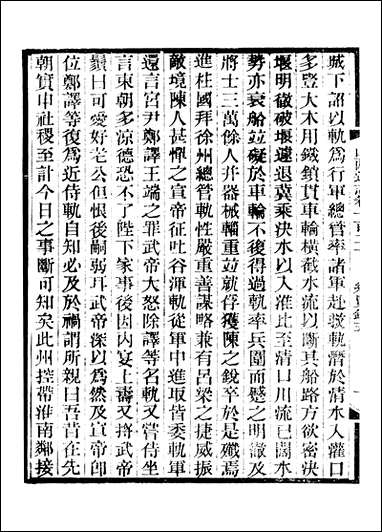 城下詔以軌爲行軍總管率諸軍赴救軌潛於清水入灌口
多豎大木用鐵鎖貫車輪橫截水流以斷其船路方欲密決
堰明徹破堰遽退冀乘決水以入淮比至清口川流已闊水
勢亦衰船竝礙於車輪不後得過軌率兵圍而蹙之明徹及
將士三萬餘人并器械輜重竝就俘獲陳之銳卒於是殲焉
進柱國拜徐州總管軌性嚴重善謀略兼有呂梁之捷威振
敵境陳人甚憚之宣帝征吐谷渾軌從軍中進取皆委軌軍
還言宮尹鄭譯王端之罪武帝大怒除譯等名軌又嘗侍坐
言東朝多涼德恐不了陛下家事後因內宴上壽又捋武帝
鬚曰可愛好老公但恨後嗣弱耳武帝深以爲然及宣帝卽
位鄭譯等復爲近侍軌自知必及於禍謂所親曰吾昔在先
朝實申社稷至計今日之事斷可知矣此州控帶淮南鄰接